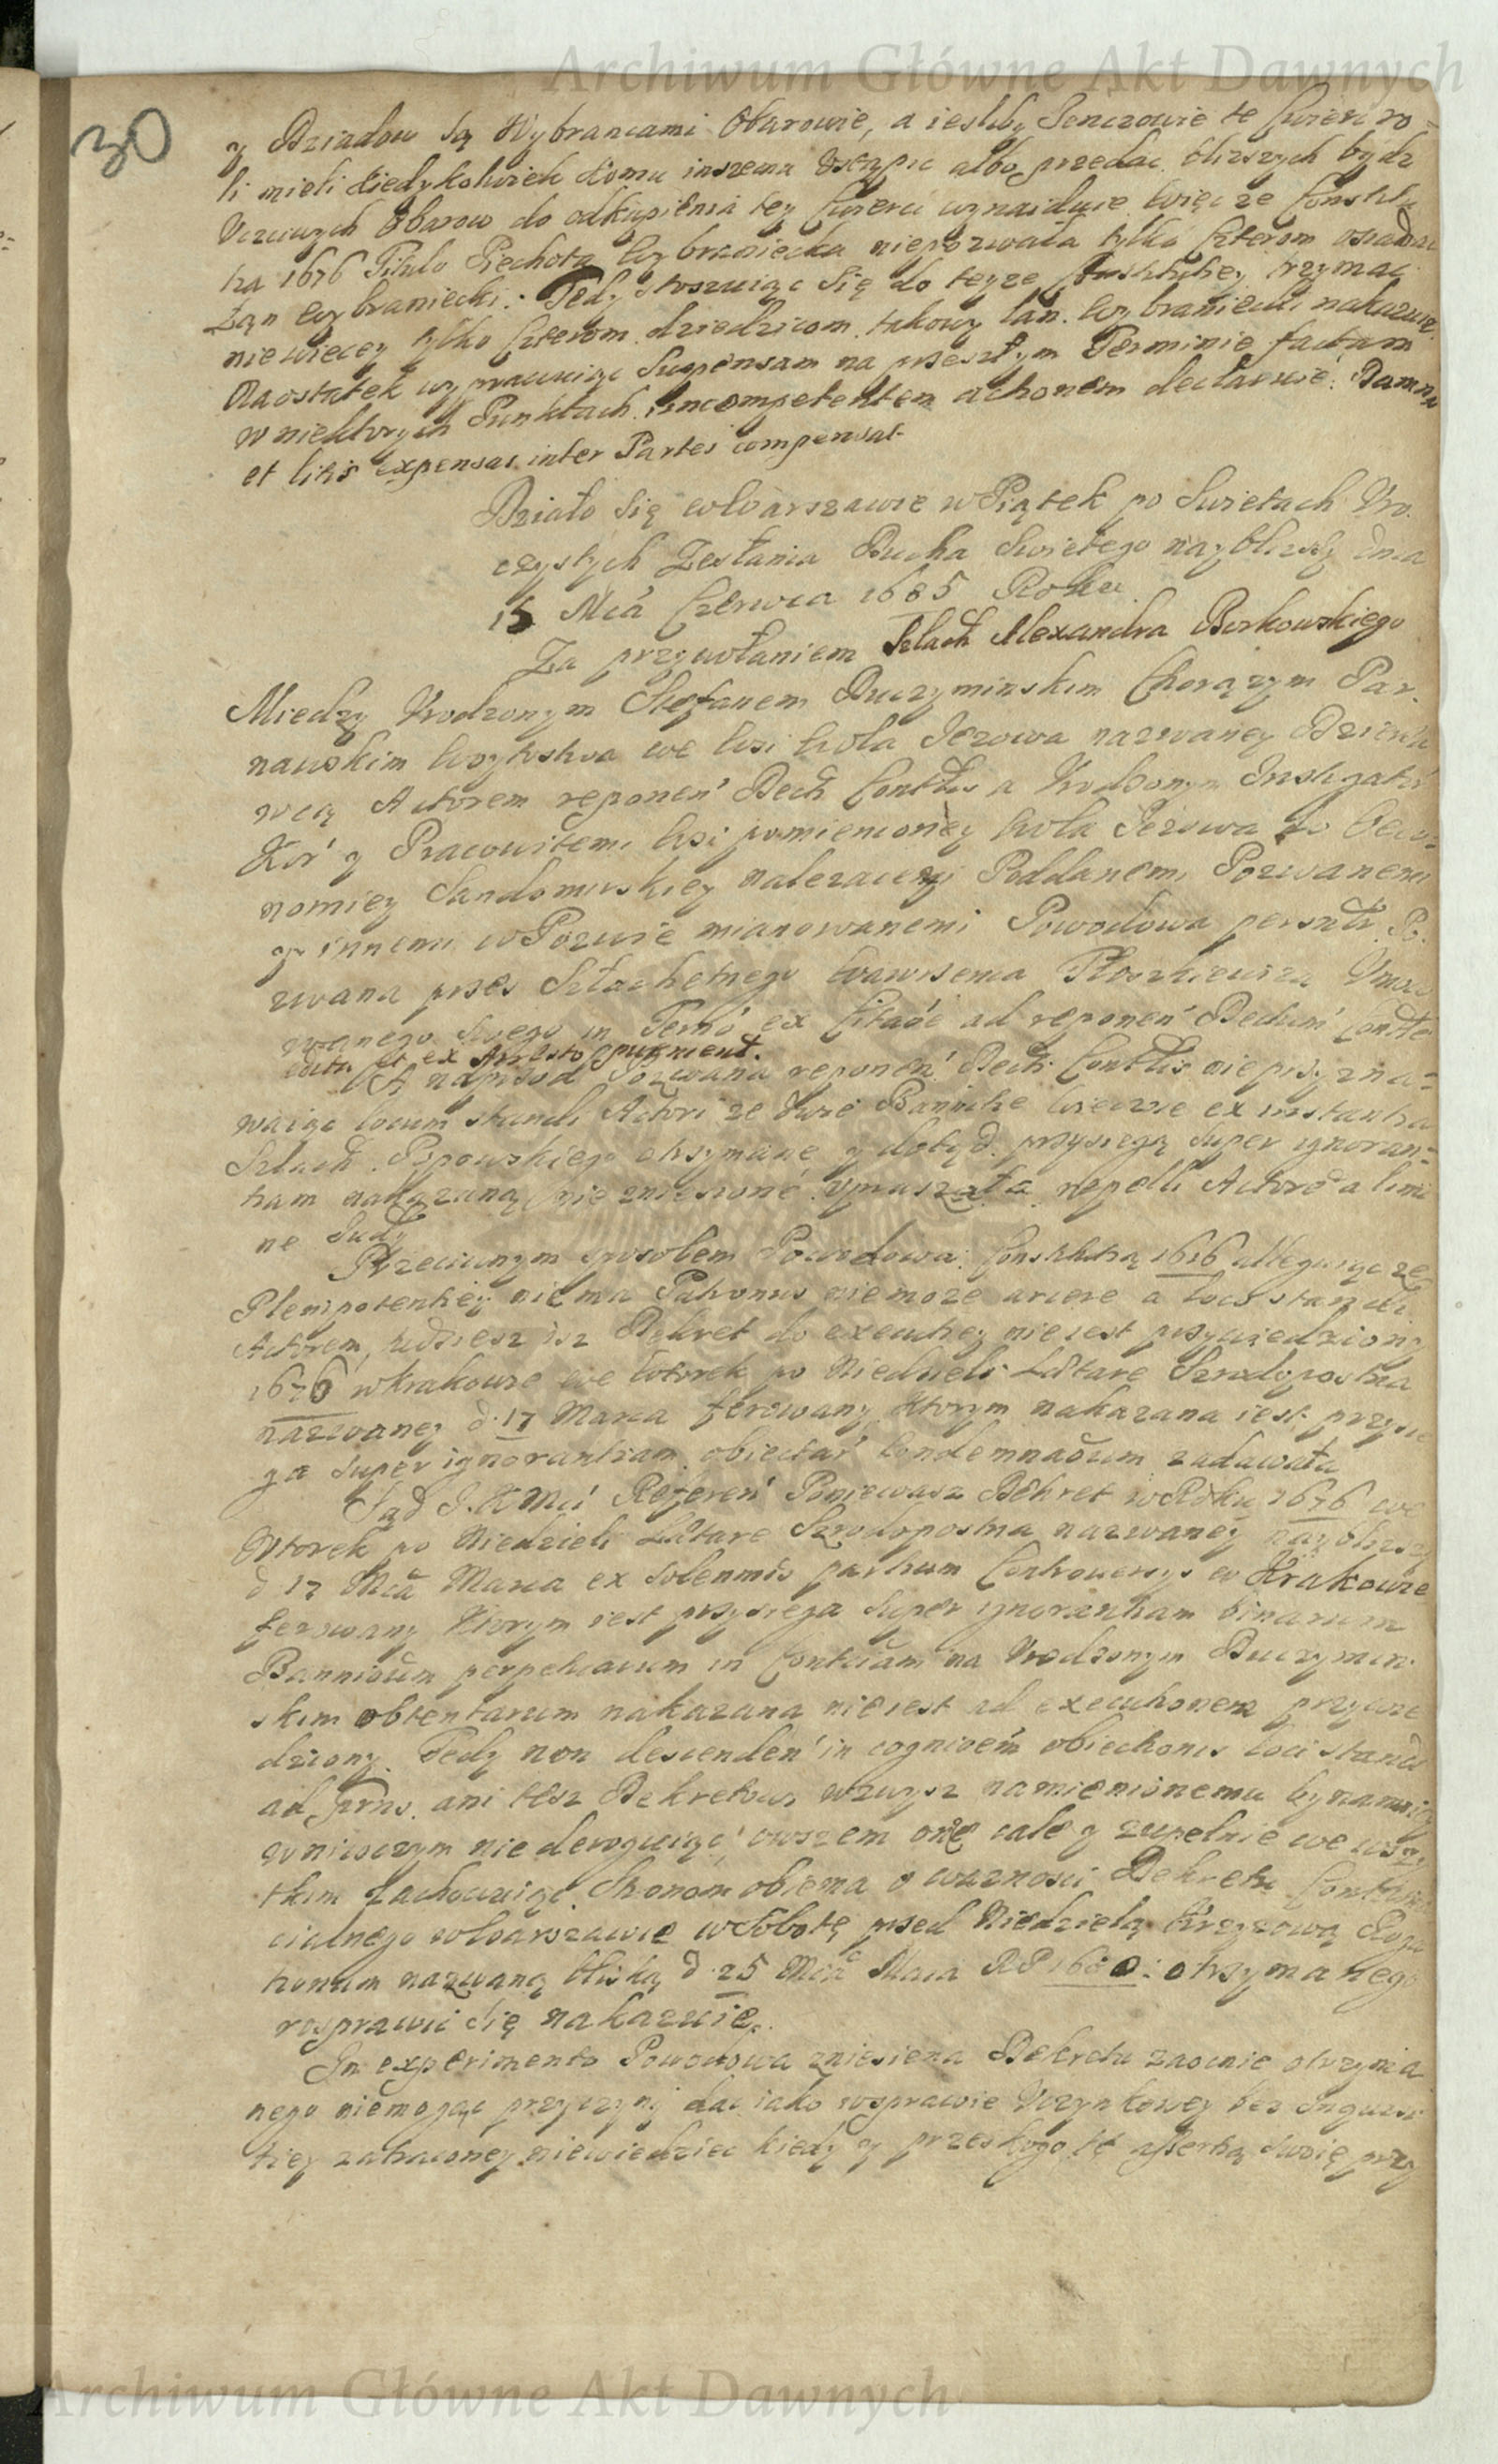 Archiwum Główne Akt Dawnych
30
y Dziadow są Wybrancami Obarowie, a iesliby Senczowie te Cwierc ro-
li mieli kiedykolwiek komu inszemu Ustąpic albo przedac blizszych bydz
Uczciwych Obarow do odkupienia tey Cwierci uznaiduie. Więc ze Constitu
tia 1676 Titulo Piechota Wybraniecka niepozwala tylko Czterom osiadac
Łan Wybraniecki. Tedy stosuiąc się do teyze Constitutiey trzymac
niewiecey tylko Czterom dziedzicom takowy łan Wybraniecki nakazuie.
Naostatek wyprawuiąc Suspensam na przeszłym Terminie factam
w niektorych Punktach incompetentem actionem declaruie. Damna
et litis expensas inter Partes compensat.
Działo się w Warszawie w Piątek po Swietach Uro-
czystych Zesłania Ducha Swietego nayblizszy dnia
15 Mca Czerwca 1685 Roku.
Za przywołaniem Szlach Alexandra Borkowskiego
Miedzy Urodzonym Stefanem Duczyminskim Chorązym Par-
nawskim Woytostwa we Wsi Wola Jezowa nazwaney Dzierza
wcą Actorem reponen Decti Conttis a Urodzonym Instigator
Kor y Pracowitemi Wsi pomienioney Wola Jezowa do Oeco-
nomiey Sandomirskiey nalezacey Poddanemi Pozwanemi
y innemi w Pozwie mianowanemi Powodowa personalr Po-
zwana przes Szlachetnego Wawrzenca Płoszkiewicza Umoc
wanego swego in Termo ex Citaōe ad reponen Decium Contte
edita et ex Arresto comparuerunt.
A naprzod Pozwana reponen Decti Conttis nieprzyzna-
waiąc locum standi Actori ze dwie Bannitie wieczne ex instantia
Szlach. Popowskiego otrzymane y dotąd przysięgą super ignoran-
tiam nakazaną nie zniesione upraszała repelli Actore a limi
ne Judy
Przeciwnym sposobem Powodowa Constitutią 1616 alleguiąc ze
Plenipotentiey nie ma Patronus niemoze arcere a loco standi
Actorem, tudziesz isz Dekret do executiey nie iest przywiedziony
1676 w Krakowie we Wtorek po Niedzieli Lætare Szrodopostna
nazwaney d. 17 Marca ferowany Ktorym nakazana iest przysie
ga super ignorantiam obiectar Condemnaōum zadawała
Sąd J.K.Mci Referen Poniewasz Dekret w Roku 1676 we
Wtorek po Niedzieli Lætare Szrodopostna nazwaney nayblizszy
d 17 Mca Marca ex solennis partium Controversys w Krakowie
ferowany Ktorym iest przysiega super ignorantiam binarum
Bannioum perpetuarum in Conttiam na Urodzonym Duczymin-
skim obtentarum nakazana nie iest ad executionem przywie
dziony. Tedy non descenden in cognioem obiectionis loci standi
ad prns. ani tesz Dekretowi wzwysz namienionemu bynamniey
w niwczym nie deroguiąc, owszem one cale y zupełnie we wszy
tkim zachowuiąc Stronom obiema o wazności Dekretu Contuma
cialnego w Warszawie w Sobotę przed Niedzielą Krzyzową Roga
tionum nazwaną bliską d 25 Mca Maia RP 1680 otrzymanego
rosprawic się nakazuie.
In experimento Powodowa zniesienia Dekretu zaocznie otrzyma
nego niemogąc przyczyny dac iako wsprawie Uczynkowey bes Inquisi
tiey zatraconey niewiedziec kiedy y przeskogo te assertią swoię przy
Archiwum Główne Akt Dawnych